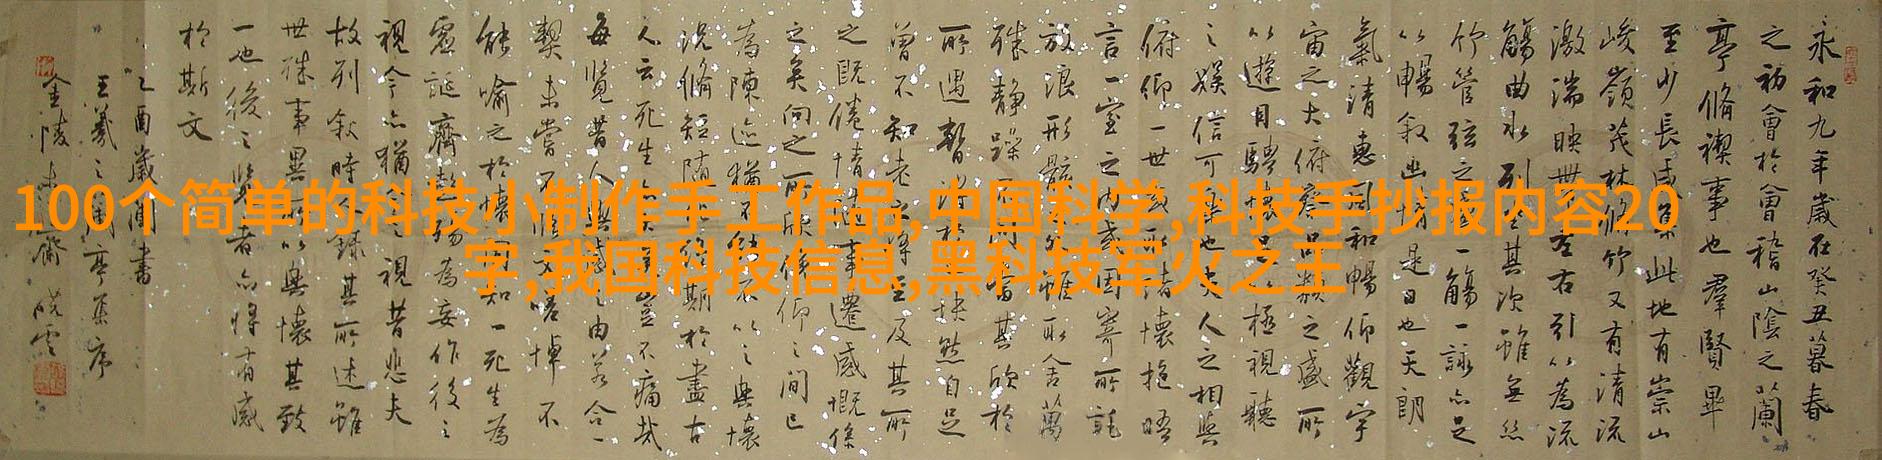 100个简单的科技小制作手工作品,中国科学,科技手抄报内容20
字,我国科技信息,黑科技军火之王
永和九年歲在癸丑暮春
之初會於會稽山陰之蘭
亭脩禊事也羣賢畢
至少長咸集此地有崇山
峻嶺茂林脩竹又有清流
激湍映帶左右引以為流
觴曲水列坐其次雖無絲
竹管弦之盛一觴一詠亦足
以暢敘幽情是日也天朗
氣清惠風和暢仰觀宇
宙之大俯察品類之盛所
以遊目騁懷足以極視聽
之娛信可樂也夫人之相與
俯仰一世或取諸懷抱晤
言一室之內或因寄所託
放浪形骸之外雖取舍萬
殊靜躁不同當其欣於
所遇暫得於己快然自足
曾不知老之將至及其所
之既倦情隨事遷感慨係
之矣向之所欣俛仰之間已
為陳迹猶不能不以之興懷
況脩短隨化終期於盡古
人云死生亦大矣豈不痛哉
每覽昔人興感之由若合一
契未嘗不臨文嗟悼不
能喻之於懷固知一死生為
虛誕齊彭殤為妄作後之
視今亦猶今之視昔悲夫
故列敘時人錄其所述雖
世殊事異所以興懷其致
一也後之覽者亦將有感
於斯文
乙酉歲書
王羲之蘭亭集序
金陵